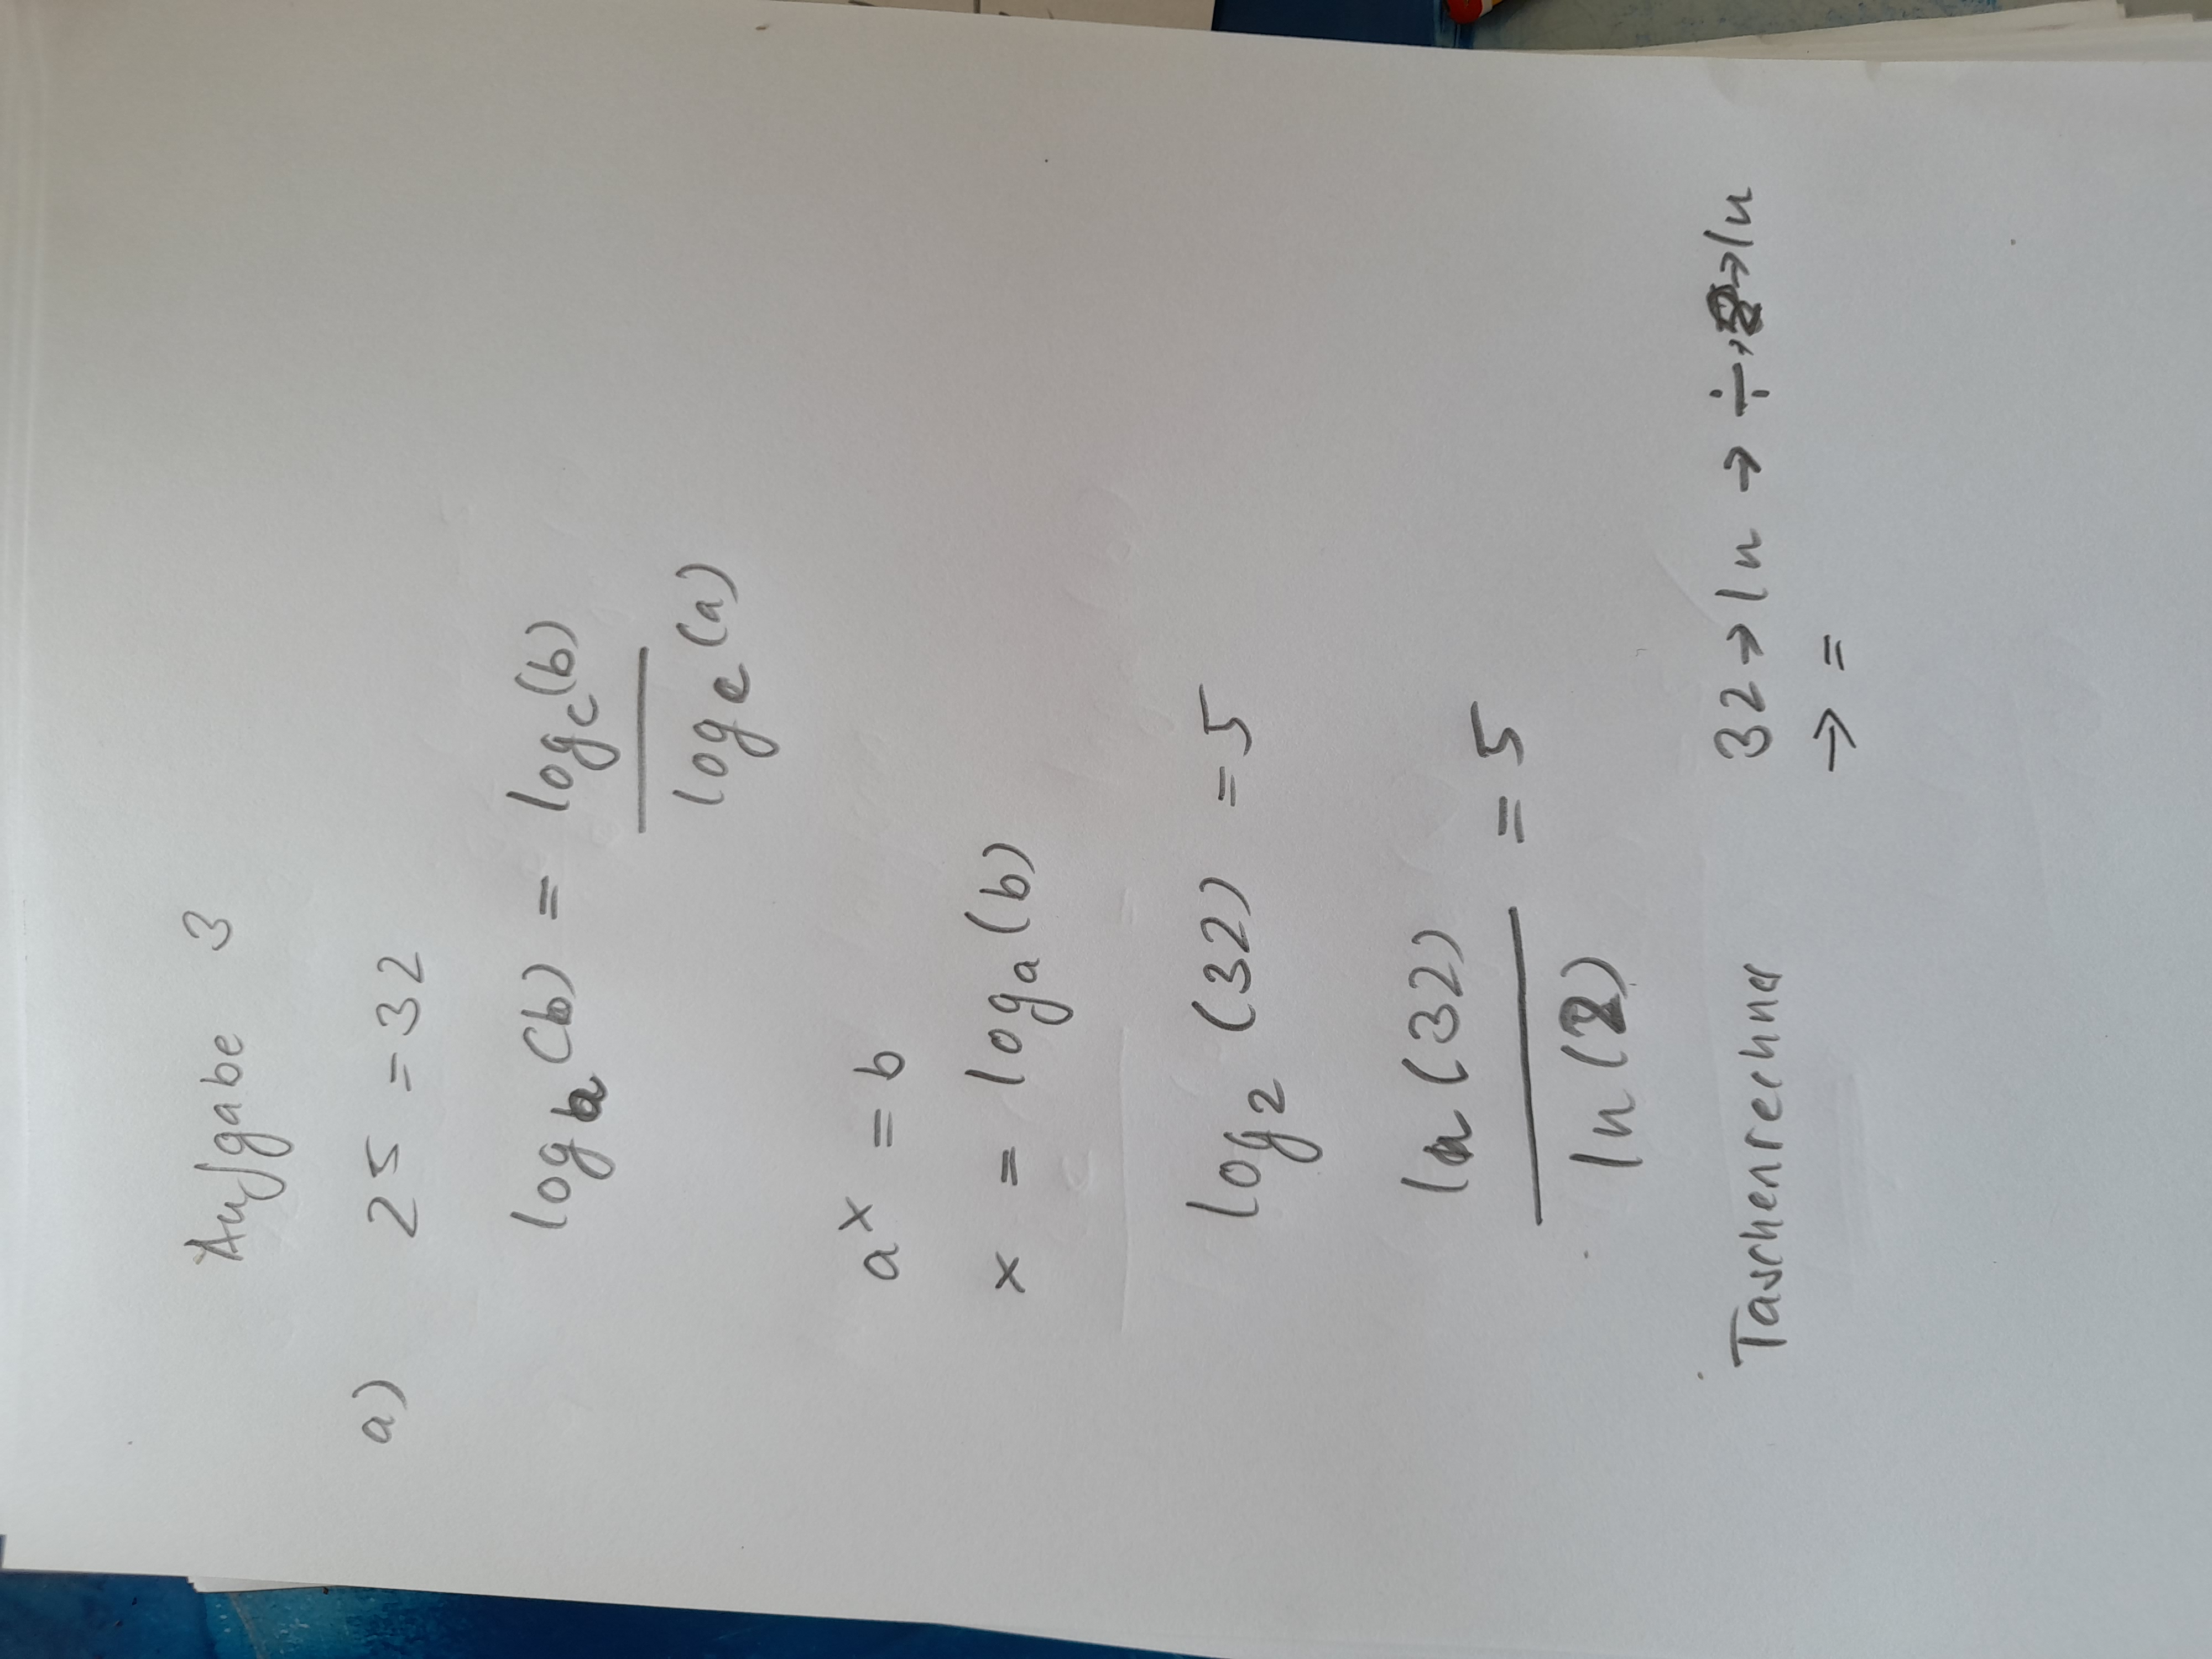 Aufgabe 3
a) 25 = 32
log a (b) = log c (b)
log c (a)
a^x = b
x = log a (b)
log 2 (32) = 5
ln (32) = 5
ln (2)
Taschenrechner 32 → ln → ÷ → 2 → ln
→ =